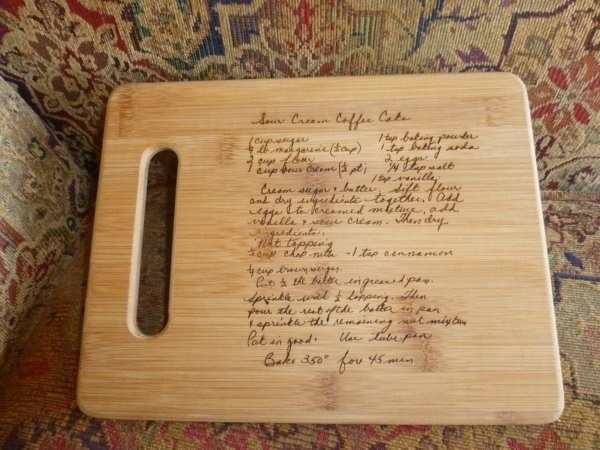 Sour Cream Coffee Cake
1 cup sugar 1 tsp baking powder
¼ lb. margarine (½ cup) 1 tsp baking soda
2 cup flour 2 eggs
1 cup sour cream (½ pt) ¼ tsp salt
1 tsp vanilla
Cream sugar + butter, sift flour
and dry ingredients together. Add
eggs to creamed mixture, add
vanilla + sour cream. Then dry
ingredients.
Nut topping
cup chop nuts - 1 tsp cinnamon
¼ cup brown sugar.
Put ½ the batter in greased pan.
Sprinkle with ½ topping. Then
pour the rest of the batter in pan
& sprinkle the remaining nut mixture
Pat in good. Use tube pan
Bake 350° for 45 min